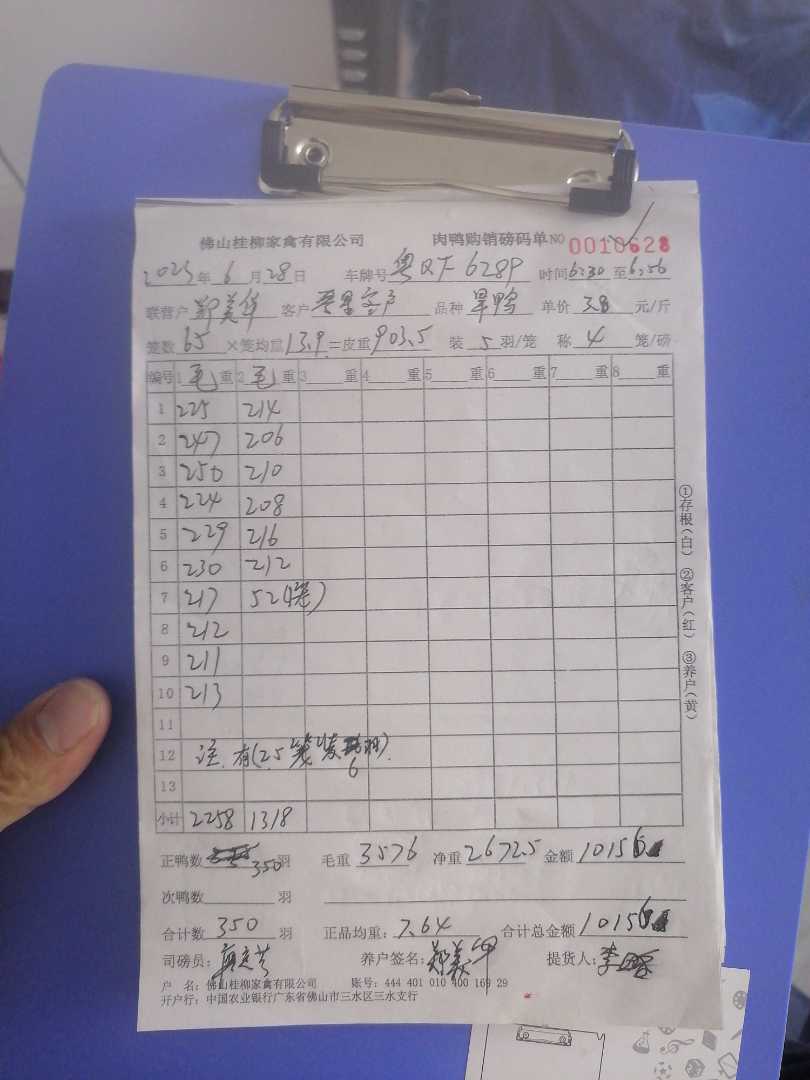 佛山桂柳家禽有限公司 肉鸭购销磅码单 NO 0010628
2025年6月28日 车牌号 粤 时间6:30至6:56
联营户 郑美华 客户 品种 旱鸭 单价 3.8 元/斤
笼数 65 ×笼均重 13.9 =皮重 903.5 装 5 羽/笼 称 4 笼/磅
编号 1 毛 重 2 毛 重 3 重 4 重 5 重 6 重 7 重 8 重
1 225 214
2 247 206
3 250 210
4 224 208
5 229 216
6 230 212
7 217 52(1笼)
8 212
9 211
10 213
11
12 注.有(25笼装6羽)
13
小计 2258 1318
①存根(白) ②客户(红) ③养户(黄)
正鸭数 350 羽 毛重 3576 净重 2672.5 金额 10156
次鸭数 羽
合计数 350 羽 正品均重: 7.64 合计总金额 10156
司磅员: 养户签名: 郑美华 提货人: 李
户 名: 佛山桂柳家禽有限公司 账号: 444 401 010 400 169 29
开户行: 中国农业银行广东省佛山市三水区三水支行